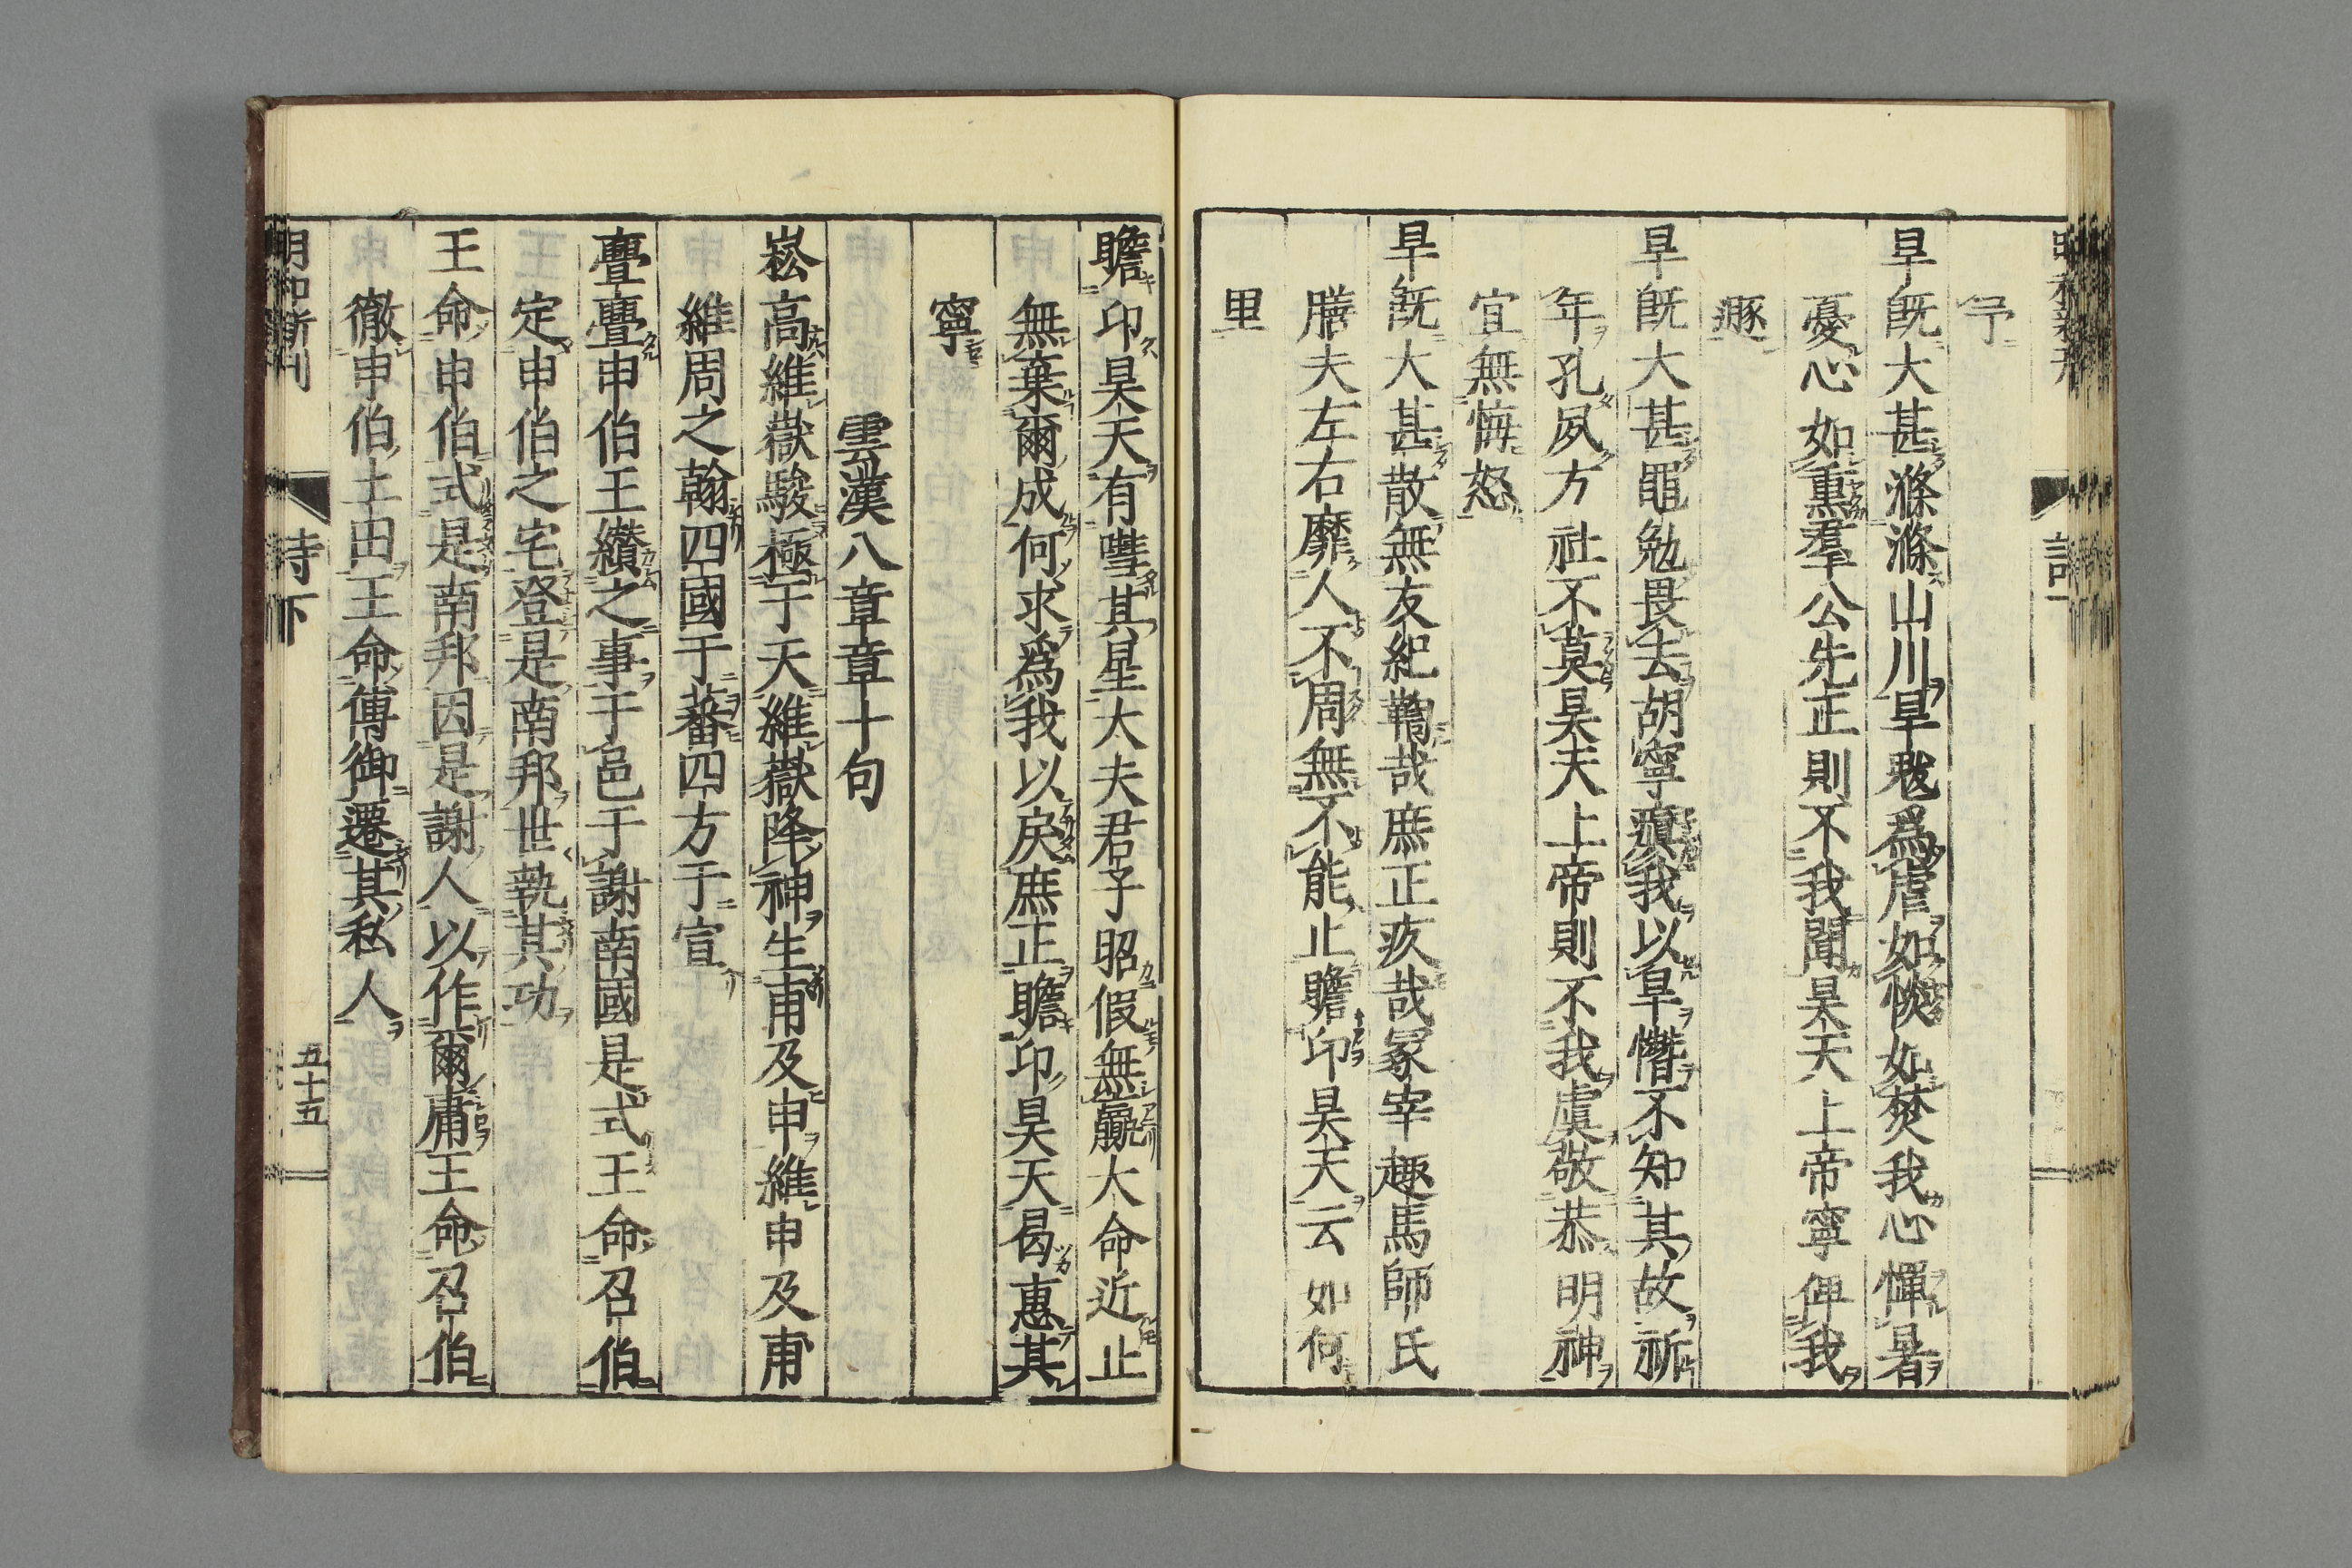 予
旱既大甚滌滌山川旱魃爲虐如惔如焚我心憚暑
憂心如熏羣公先正則不我聞昊天上帝寧俾我
遯
旱既大甚黽勉畏去胡寧瘨我以旱憯不知其故祈
年孔夙方社不莫昊天上帝則不我虞敬恭明神
宜無悔怒
旱既大甚散無友紀鞫哉庶正疚哉冢宰趣馬師氏
膳夫左右靡人不周無不能止瞻卬昊天云如何
里
瞻卬昊天有嘒其星大夫君子昭假無贏大命近止
無棄爾成何求爲我以戾庶正瞻卬昊天曷惠其
寧
雲漢八章章十句
崧高維嶽駿極于天維嶽降神生甫及申維申及甫
維周之翰四國于蕃四方于宣
亹亹申伯王纘之事于邑于謝南國是式王命召伯
定申伯之宅登是南邦世執其功
王命申伯式是南邦因是謝人以作爾庸王命召伯
徹申伯土田王命傅御遷其私人
明和新刊
詩下
五十五